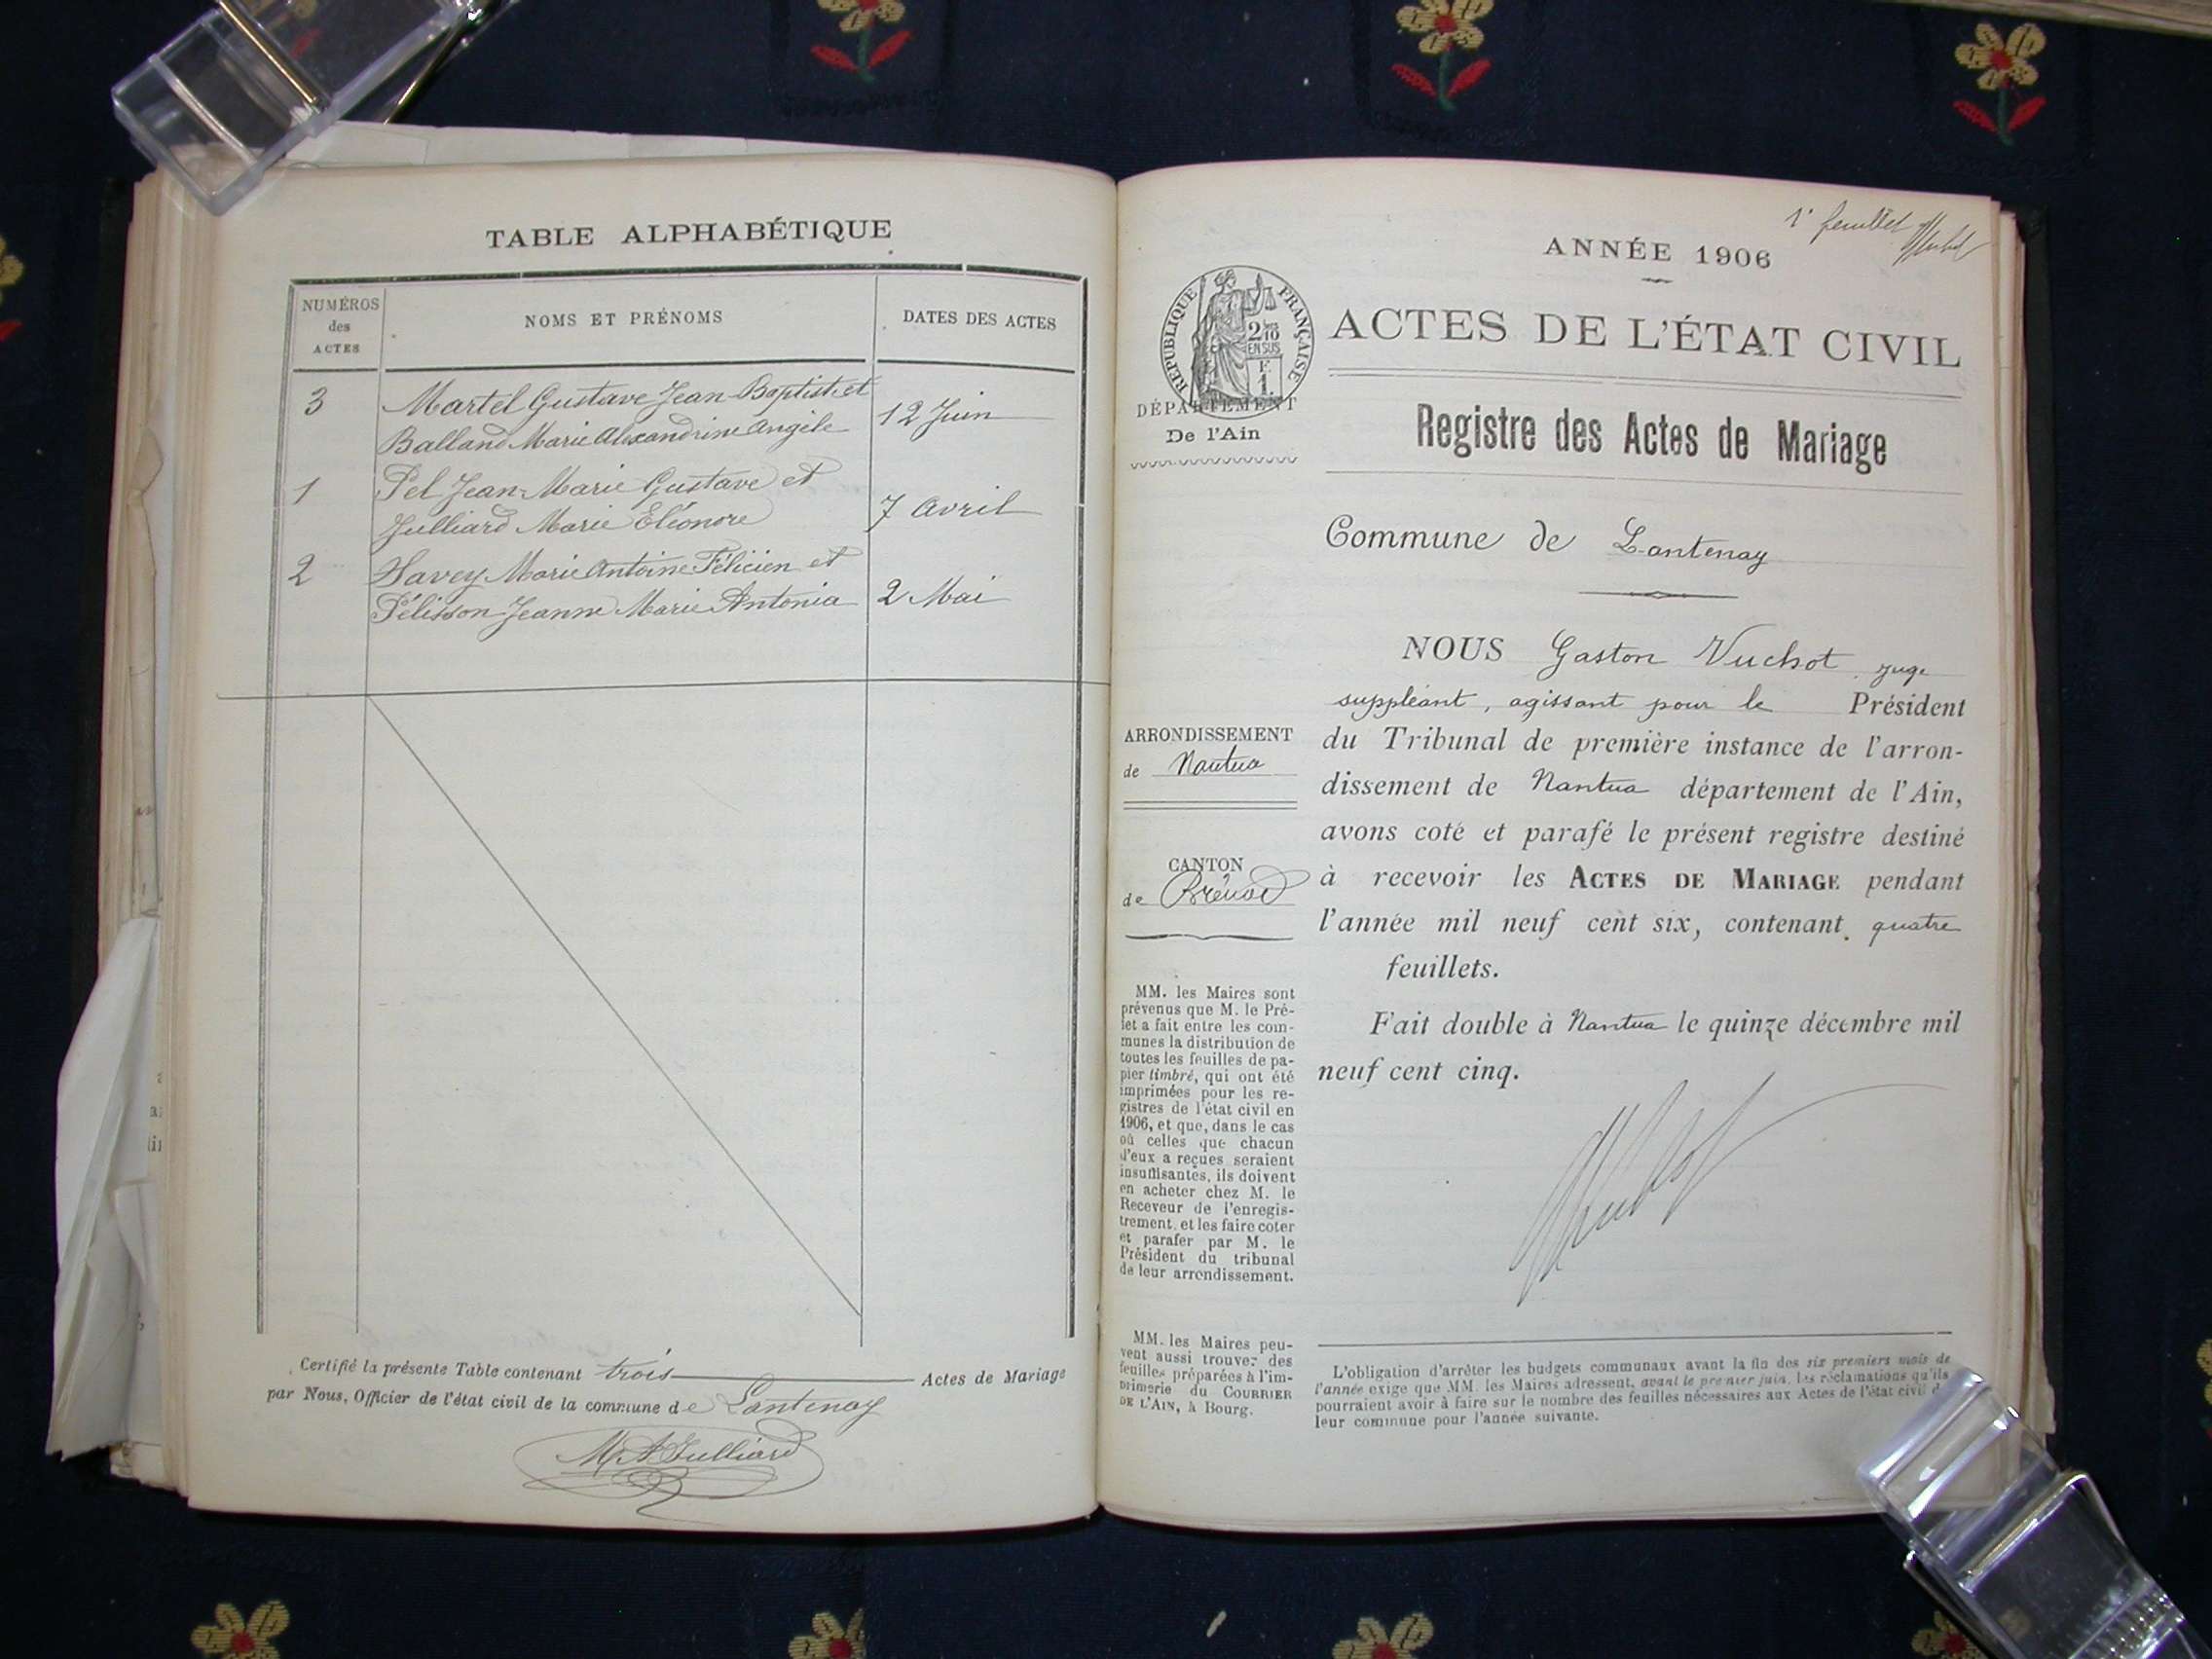 TABLE ALPHABÉTIQUE
NUMÉROS
des
ACTES
NOMS ET PRÉNOMS
DATES DES ACTES
3
Martel Gustave Jean-Baptiste et
Balland Marie Alexandrine Angèle
12 Juin
1
Pel Jean-Marie Gustave et
Julliard Marie Eléonore
7 avril
2
Savey Marie Antoine Félicien et
Pélisson Jeanne Marie Antonia
2 Mai
Certifié la présente Table contenant trois Actes de Mariage
par Nous, Officier de l'état civil de la commune de Lantenay
M A Julliard
1er feuillet
ANNÉE 1906
RÉPUBLIQUE FRANÇAISE
2/10
EN SUS
F.
1.
DÉPARTEMENT
De l'Ain
ACTES DE L'ÉTAT CIVIL
Registre des Actes de Mariage
Commune de Lantenay
NOUS Gaston Vuchot, juge
suppléant, agissant pour le Président
du Tribunal de première instance de l'arron-
dissement de Nantua département de l'Ain,
avons coté et parafé le présent registre destiné
à recevoir les ACTES DE MARIAGE pendant
l'année mil neuf cent six, contenant quatre
feuillets.
Fait double à Nantua le quinze décembre mil
neuf cent cinq.
ARRONDISSEMENT
de Nantua
CANTON
de Brénod
MM. les Maires sont
prévenus que M. le Pré-
fet a fait entre les com-
munes la distribution de
toutes les feuilles de pa-
pier timbré, qui ont été
imprimées pour les re-
gistres de l'état civil en
1906, et que, dans le cas
où celles que chacun
d'eux a reçues seraient
insuffisantes, ils doivent
en acheter chez M. le
Receveur de l'enregis-
trement, et les faire coter
et parafer par M. le
Président du tribunal
de leur arrondissement.
MM. les Maires peu-
vent aussi trouver des
feuilles préparées à l'im-
primerie du COURRIER
DE L'AIN, à Bourg.
L'obligation d'arrêter les budgets communaux avant la fin des six premiers mois de
l'année exige que MM. les Maires adressent, avant le premier juin, les réclamations qu'ils
pourraient avoir à faire sur le nombre des feuilles nécessaires aux Actes de l'état civil
leur commune pour l'année suivante.